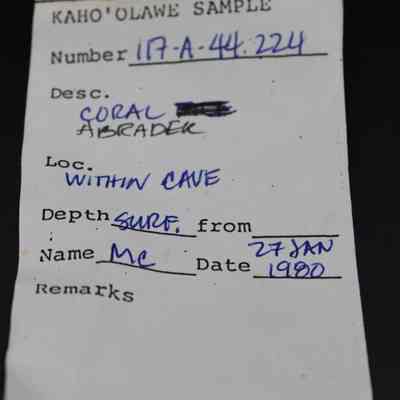 KAHO'OLAWE SAMPLE
Number 117-A-44.224
Desc.
CORAL
ABRADER
Loc.
WITHIN CAVE
Depth SURF. from
Name MC Date 27 JAN 1980
Remarks